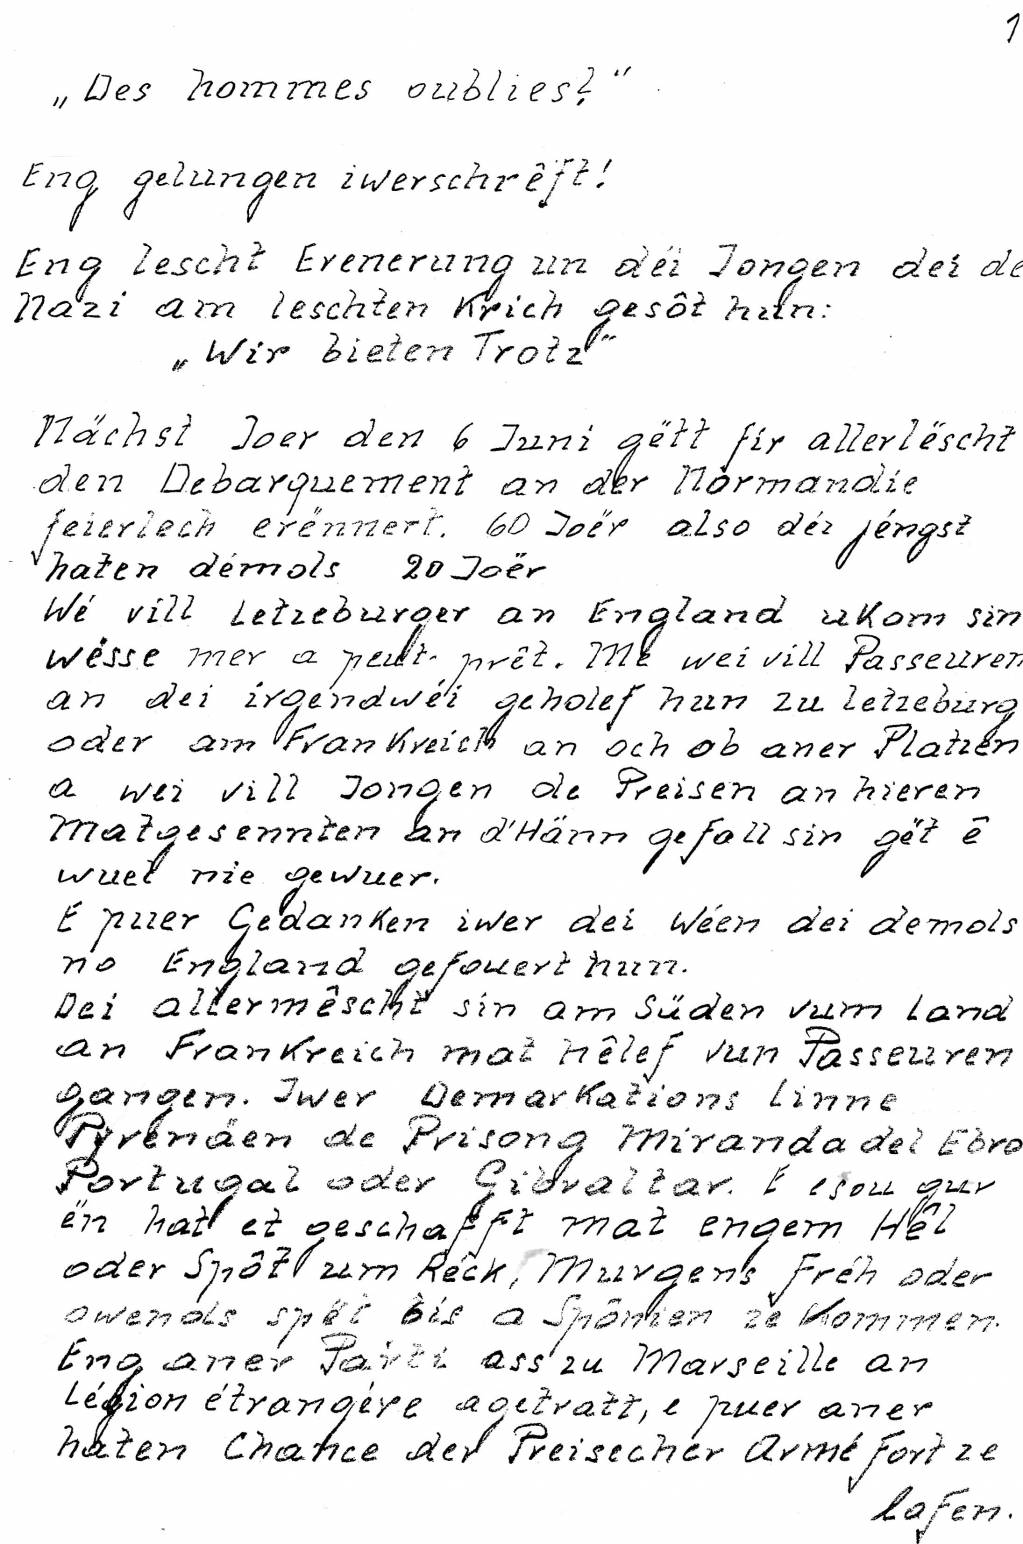 1
„Des hommes oublies?"
Eng gelungen iwerschrêft!
Eng lescht Erenerung un déi Jongen dei de
Nazi am leschten Krich gesôt hun:
„Wir bieten Trotz"
Nächst Joer den 6 Juni gëtt fir allerlëscht
den Debarquement an der Normandie
feierlech erënnert. 60 Joër also déi jéngst
haten démols 20 Joër
Wé vill Letzeburger an England ukom sin
wésse mer a peut-prêt. Mé wei vill Passeuren
an dei irgendwéi geholef hun zu Letzeburg
oder am Frankreich an och ob aner Platzen
a wei vill Jongen de Preisen an hieren
Matgesennten an d'Hänn gefall sin gët ê
wuel nie gewuer.
E puer Gedanken iwer dei Wéen dei demols
no England gefouert hun.
Dei allermêscht sin am Süden vum Land
an Frankreich mat Hêlef vun Passeuren
gangen. Iwer Demarkations Linne
Pyrenäen de Prisong Miranda del Ebro
Portugal oder Gibraltar. E esou gur
ën hat et geschafft mat engem Hêl
oder Spôt um Réck, Murgens Fréh oder
owends spët bis a Spônien ze Kommen.
Eng aner Parti ass zu Marseille an
Légion étrangére agetratt, e puer aner
haten Chance der Preisecher Armé fort ze
lafen.